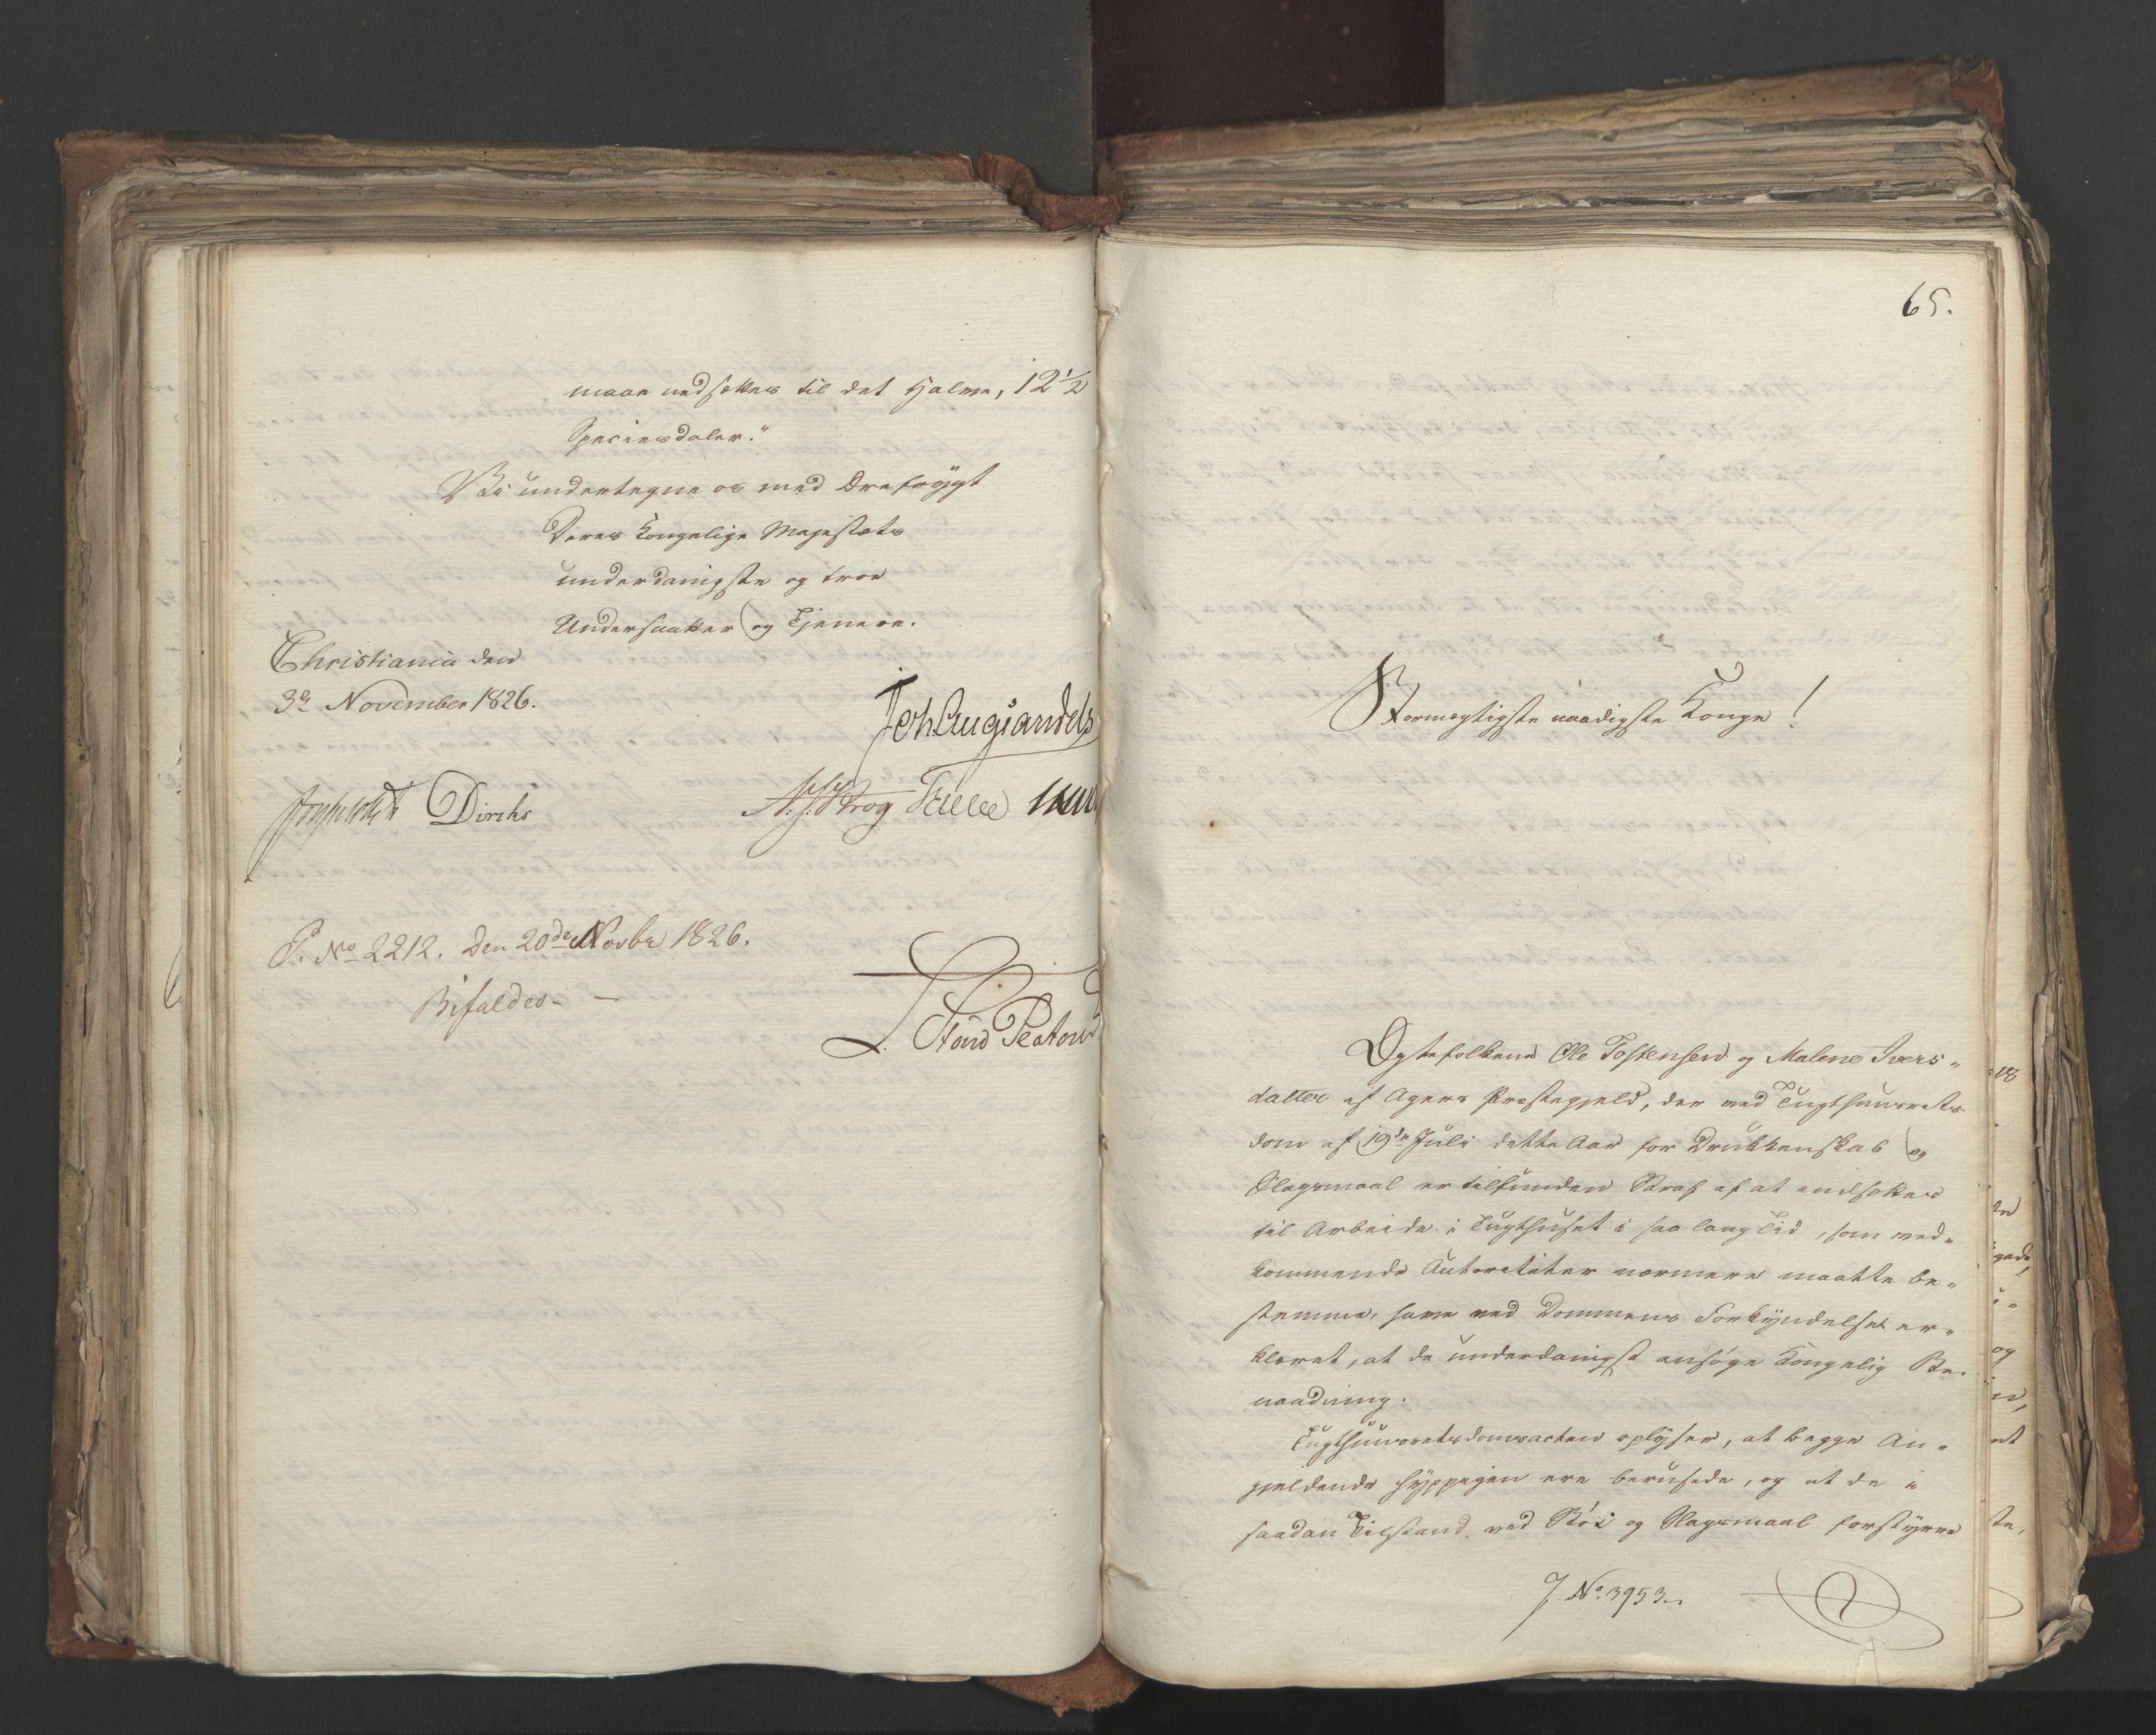 maae nedsættes til det Halve, 12 1/2
Speciesdaler."
Vi undertegne os med Ærefrygt
Deres Kongelige Majestæts
underdanigste og troe
Undersaatter og Tjenere.
Christiania den
3die November 1826.
Joh Aug Sandels
Diriks
Krog
P. No 2212. Den 20de Novbr 1826.
Bifaldes.
65.
Stormægtigste naadigste Konge!
Ægtefolkene Ole Tostensen og Malene Ivers-
datter af Agers Præstegjeld, der ved Tugthuusrets
dom af 19de Juli dette Aar for Drukkenskab og
Slagsmaal er tilfunden Straf af at indsættes
til Arbeide i Tugthuset i saa lang Tid, som ved-
kommende Autoriteter nærmere maatte be-
stemme, have ved Dommens Forkyndelse er-
klæret, at de underdanigst ansøge Kongelig Be-
naadning.
Tugthuusretsdomsacten oplyser, at begge An-
gjeldende hyppigen ere berusede, og at de i
saadan Tilstand ved Støi og Slagsmaal forstyrre
J. No. 3953.